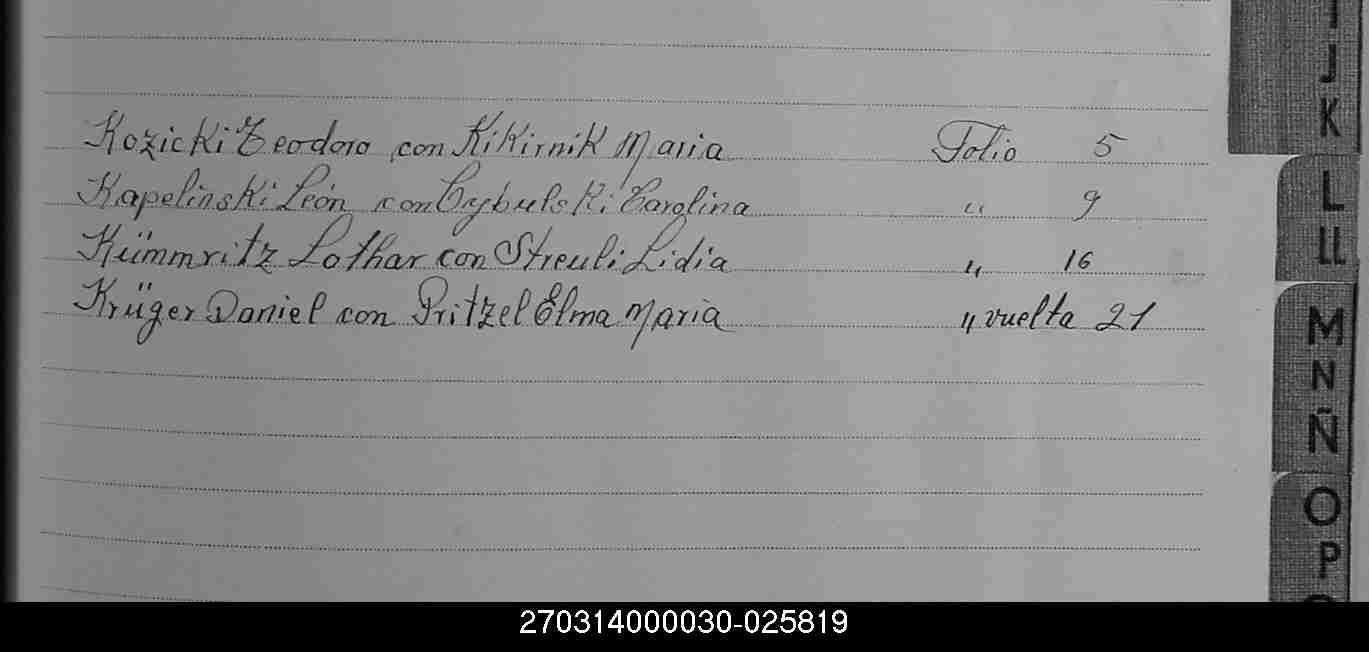 Kozicki Teodoro con KiKirniK Maria Folio 5
Kapelinski León con Cybulski Carolina " 9
Kümmritz Lothar con Streuli Lidia " 16
Krüger Daniel con Pritzel Elma Maria " vuelta 21
I
J
K
L
LL
M
N
Ñ
O
P
270314000030-025819